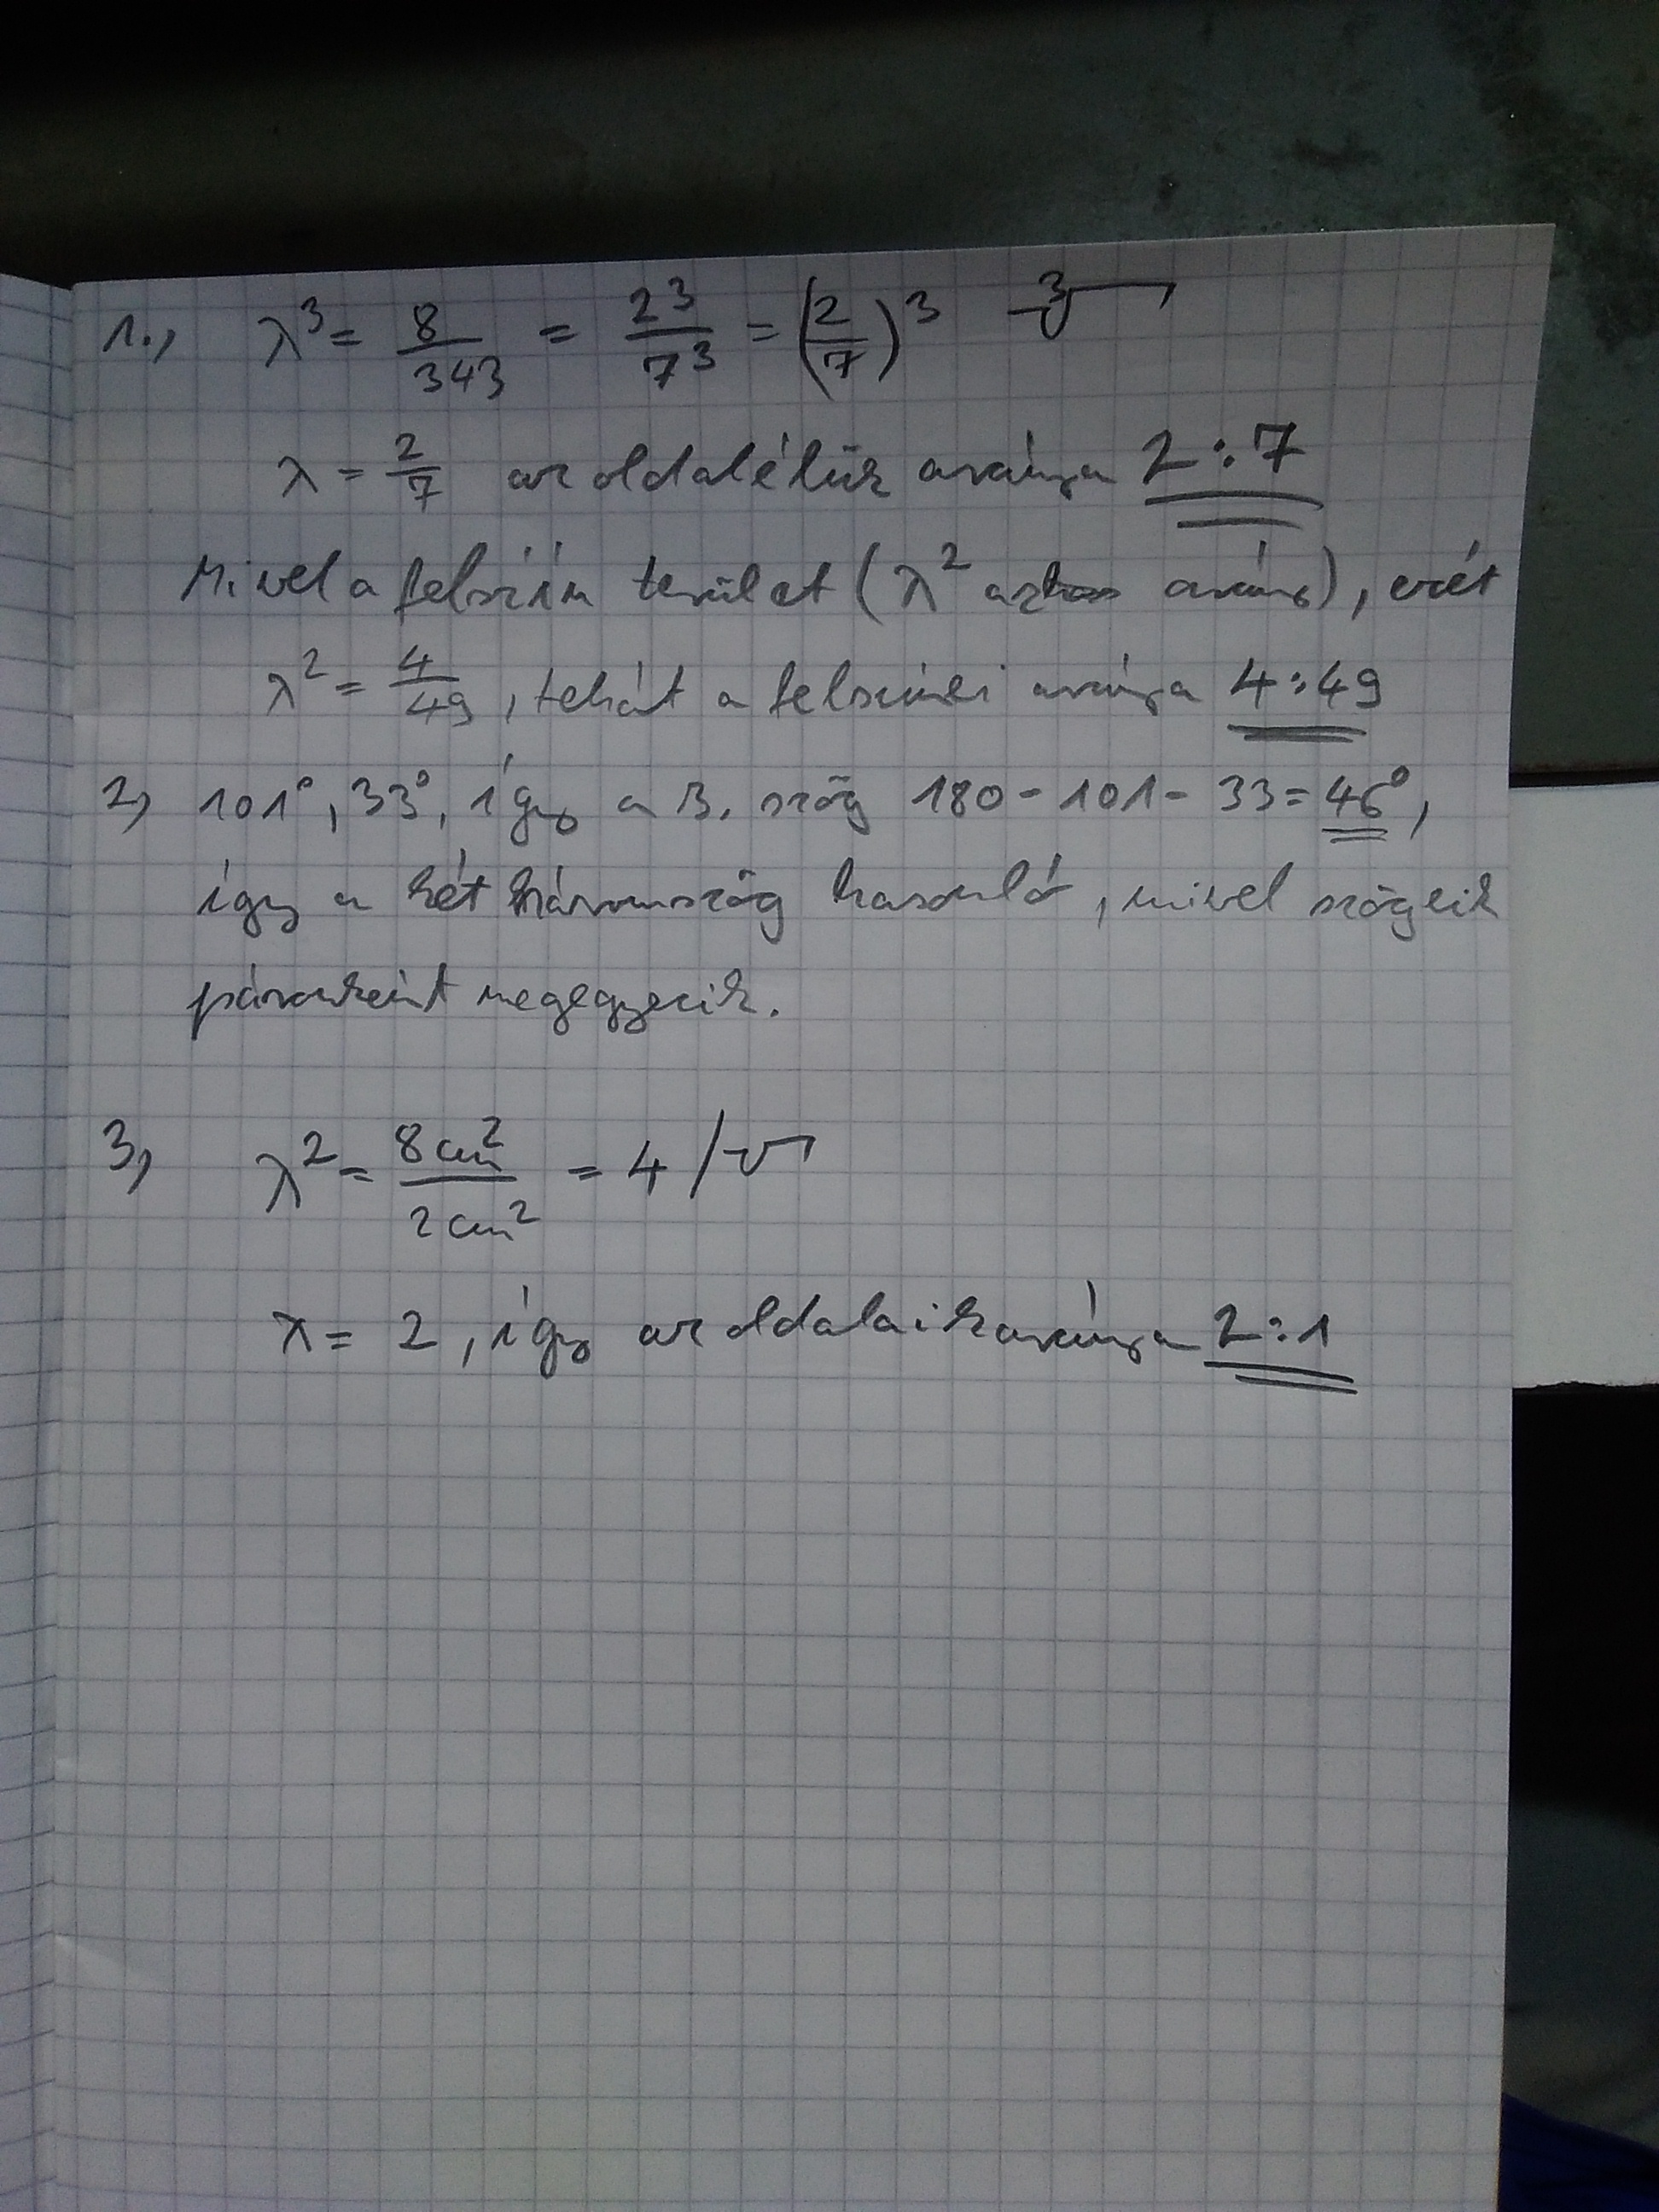 1., λ³ = 8/343 = 2³/7³ = (2/7)³ ∛
λ = 2/7 az oldalélük aránya 2:7
Mivel a felszín terület (λ² arány), ezét
λ² = 4/49, tehát a felszínei aránya 4:49
2, 101°, 33°, így a 3. szög 180-101-33=46°,
így a két háromszög hasonló, mivel szögeik
páronként megegyezik.
3, λ² = 8cm²/2cm² = 4 /√
λ = 2, így az oldalaik aránya 2:1